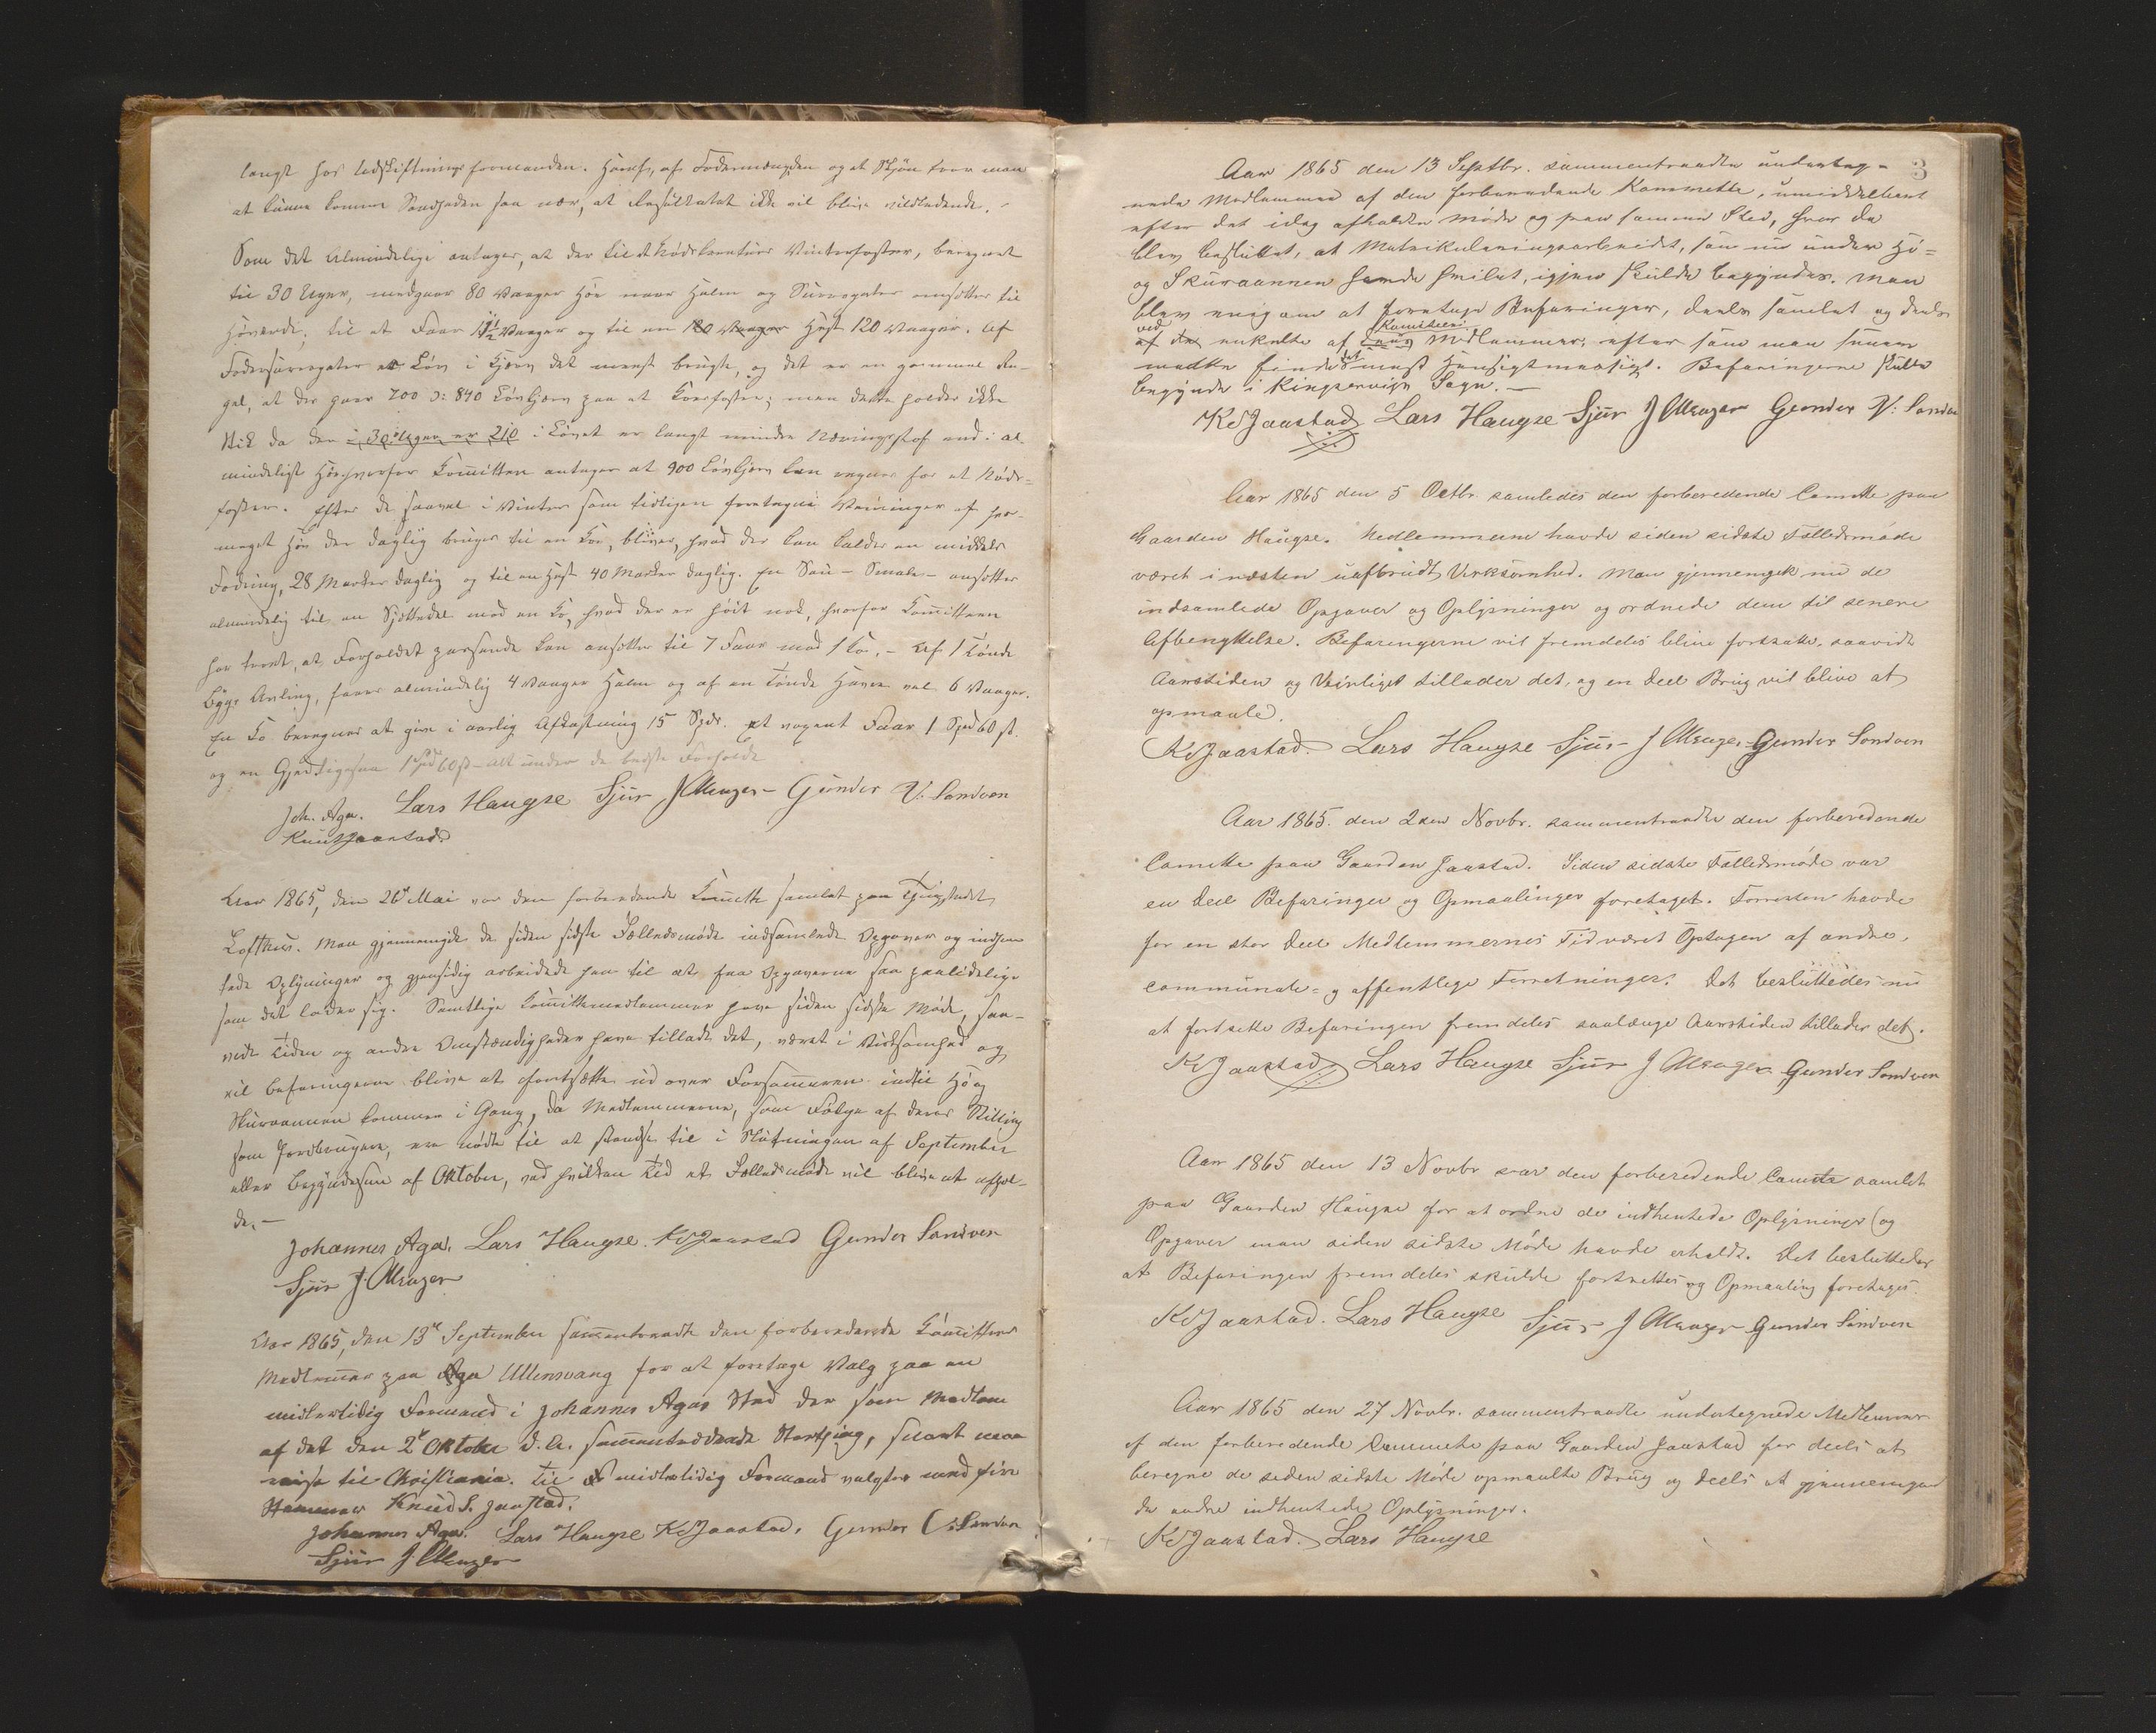 langt hos Udskiftningsformanden. Heraf, af Fodermængden og et Skjøn tror man
at kunne komme Sandheden saa nær, at Resultatet ikke vil blive vildledende. -
Som det Almindelige antages, at der til et Nødskreaturs Vinterfoster, beregnet
til 30 Uger, medgaar 80 Vaager Hø naar Halm og Surrogater ansættes til
Høværdi; til et Faar 11½ Vaager og til en 180 Vaager Hest 120 Vaager. Af
Fodersurrogater er Løv i Kjerv det meest brugte, og det er en gammel Re-
gel, at der gaar 700 ɔ: 840 Løvkjerv paa et Koefoster; men dette holder ikke
Stik da der i 30 Uger er 210 i Løvet er langt mindre Næringsstof end i al-
mindeligt Hø hvorfor Komitteen antager at 900 Løvkjerv kan regnes for et Nøds-
foster. Efter de saavel i Vinter som tidligere foretagne Veininger af hvor-
meget Hø der daglig bruges til en Ko, bliver, hvad der kan kaldes en middels
Fodring, 28 Marker daglig og til en Hest 40 Marker daglig. En Sau - Smale - ansættes
almindelig til en Sjettedel mod en Ko, hvad der er høit nok, hvorfor Komitteen
har troet, at Forholdet passende kan ansættes til 7 Faar mod 1 Ko. - Af 1 Tønde
Byg Avling, faaes almindelig 4 Vaager Halm og af en Tønde Havre vel 6 Vaager.
En Ko beregnes at give i aarlig Afkastning 15 Spdr. et voxent Faar 1 Spd 60 ß.
og en Gjed ligesaa 1 Spd 60 ß - Alt under de bedste Forholde
Joh. Aga. Lars Haugse Sjur J Mæuger Gunder V. Sandven
Knut Jaastad.
Aar 1865, den 26de Mai var den forberedende Committe samlet paa Thingstedet
Lofthus. Man gjennemgik de siden sidste Fællesmøde indsamlede Opgaver og indhen-
tede Oplysninger og gjensidig arbeidede hen til at faa Opgaverne saa paalidelige
som det lader sig. Samtlige Komittemedlemmer have siden sidste Møde, saa-
vidt Tiden og andre Omstændigheder have tilladt det, været i Virksomhed og
vil Befaringerne blive at fortsætte ud over Forsommeren indtil Hø og
Skuraannen kommer i Gang, da Medlemmerne, som Følge af deres Stilling
som Jordbrugere, ere nødte til at standse til i Slutningen af September
eller Begyndelsen af Oktober, ved hvilken Tid et Fællesmøde vil blive at afhol-
de. -
Johannes Aga. Lars Haugse. KSJaastad Gunder Sandven
Sjur J. Mæuger
Aar 1865, den 13de September sammentraadte den forberedende Committees
Medlemmer paa Aga Ullensvang for at foretage Valg paa en
midlertidig Formand i Johannes Agas Sted der som Medlem
af det den 2de Oktober d. A. sammentrædende Storthing, snart maa
reise til Christiania. Til midlertidig Formand valgtes med fire
Stemmer Knud S. Jaastad.
Johannes Aga. Lars Haugse KSJaastad. Gunder V. Sandven
Sjur J Mæuger
3
Aar 1865 den 13 Septbr. sammentraadte underteg-
nede Medlemmer af den forberedende Kommitte, umiddelbart
efter det idag afholdte møde og paa samme Sted, hvor da
blev besluttet, at Matrikuleringsarbeidet, som nu under Hø-
og Skuraannen havde hvilet, igjen skulde begyndes. Man
blev enig om at foretage Befaringer, deels samlet og deels
ved af de enkelte af Komiteens Medlemmer, efter som man kunne
maatte finde det mest Hensigtmæssigt. Befaringerne skulle
begynde i Kingservigs Sogn. -
KSJaastad Lars Haugse Sjur J Mæuger Gunder V: Sandven
Aar 1865 den 5 Octbr. samledes den forberedende Comitte paa
Gaarden Haugse. Medlemmerne havde siden sidste Fælledsmøde
været i næsten uafbrudt Virksomhed. Man gjennemgik nu de
indsamlede Opgaver og Oplysninger og ordnede dem til senere
Afbenyttelse. Befaringerne vil fremdeles blive fortsatte, saavidt
Aarstiden og Veirliget tillader det, og en Deel Brug vil blive at
opmaale.
KSJaastad. Lars Haugse Sjur J Mæuger Gunder Sandven
Aar 1865. den 2den Novbr. sammentraadte den forberedende
Comitte paa Gaarden Jaastad. Siden sidste Fælledsmøde var
en Deel Befaringer og Opmaalinger foretaget. Forresten havde
for en stor Deel Medlemmernes Tid været Optagen af andre,
communale- og offentlige Forretninger. Det besluttedes nu
at fortsette Befaringen fremdeles saalænge Aarstiden tillader det.
KSJaastad Lars Haugse Sjur J Mæuger Gunder Sandven
Aar 1865 den 13 Novbr var den forberedende Comite samlet
paa Gaarden Haugse for at ordne de indhentede Oplysninger (og
Opgaver man siden sidste Møde havde erholdt. Det besluttedes
at Befaringen fremdeles skulde fortsettes og Opmaaling foretages.
KSJaastad. Lars Haugse Sjur J Mæuger Gunder Sandven
Aar 1865 den 27 Novbr. sammentraadte undertegnede Medlemmer
af den forberedende Committe paa Gaarden Jaastad for deels at
beregne de siden sidste Møde opmaalte Brug og deels at gjennemgaa
de andre indhentede Oplysninger.
KSJaastad. Lars Haugse